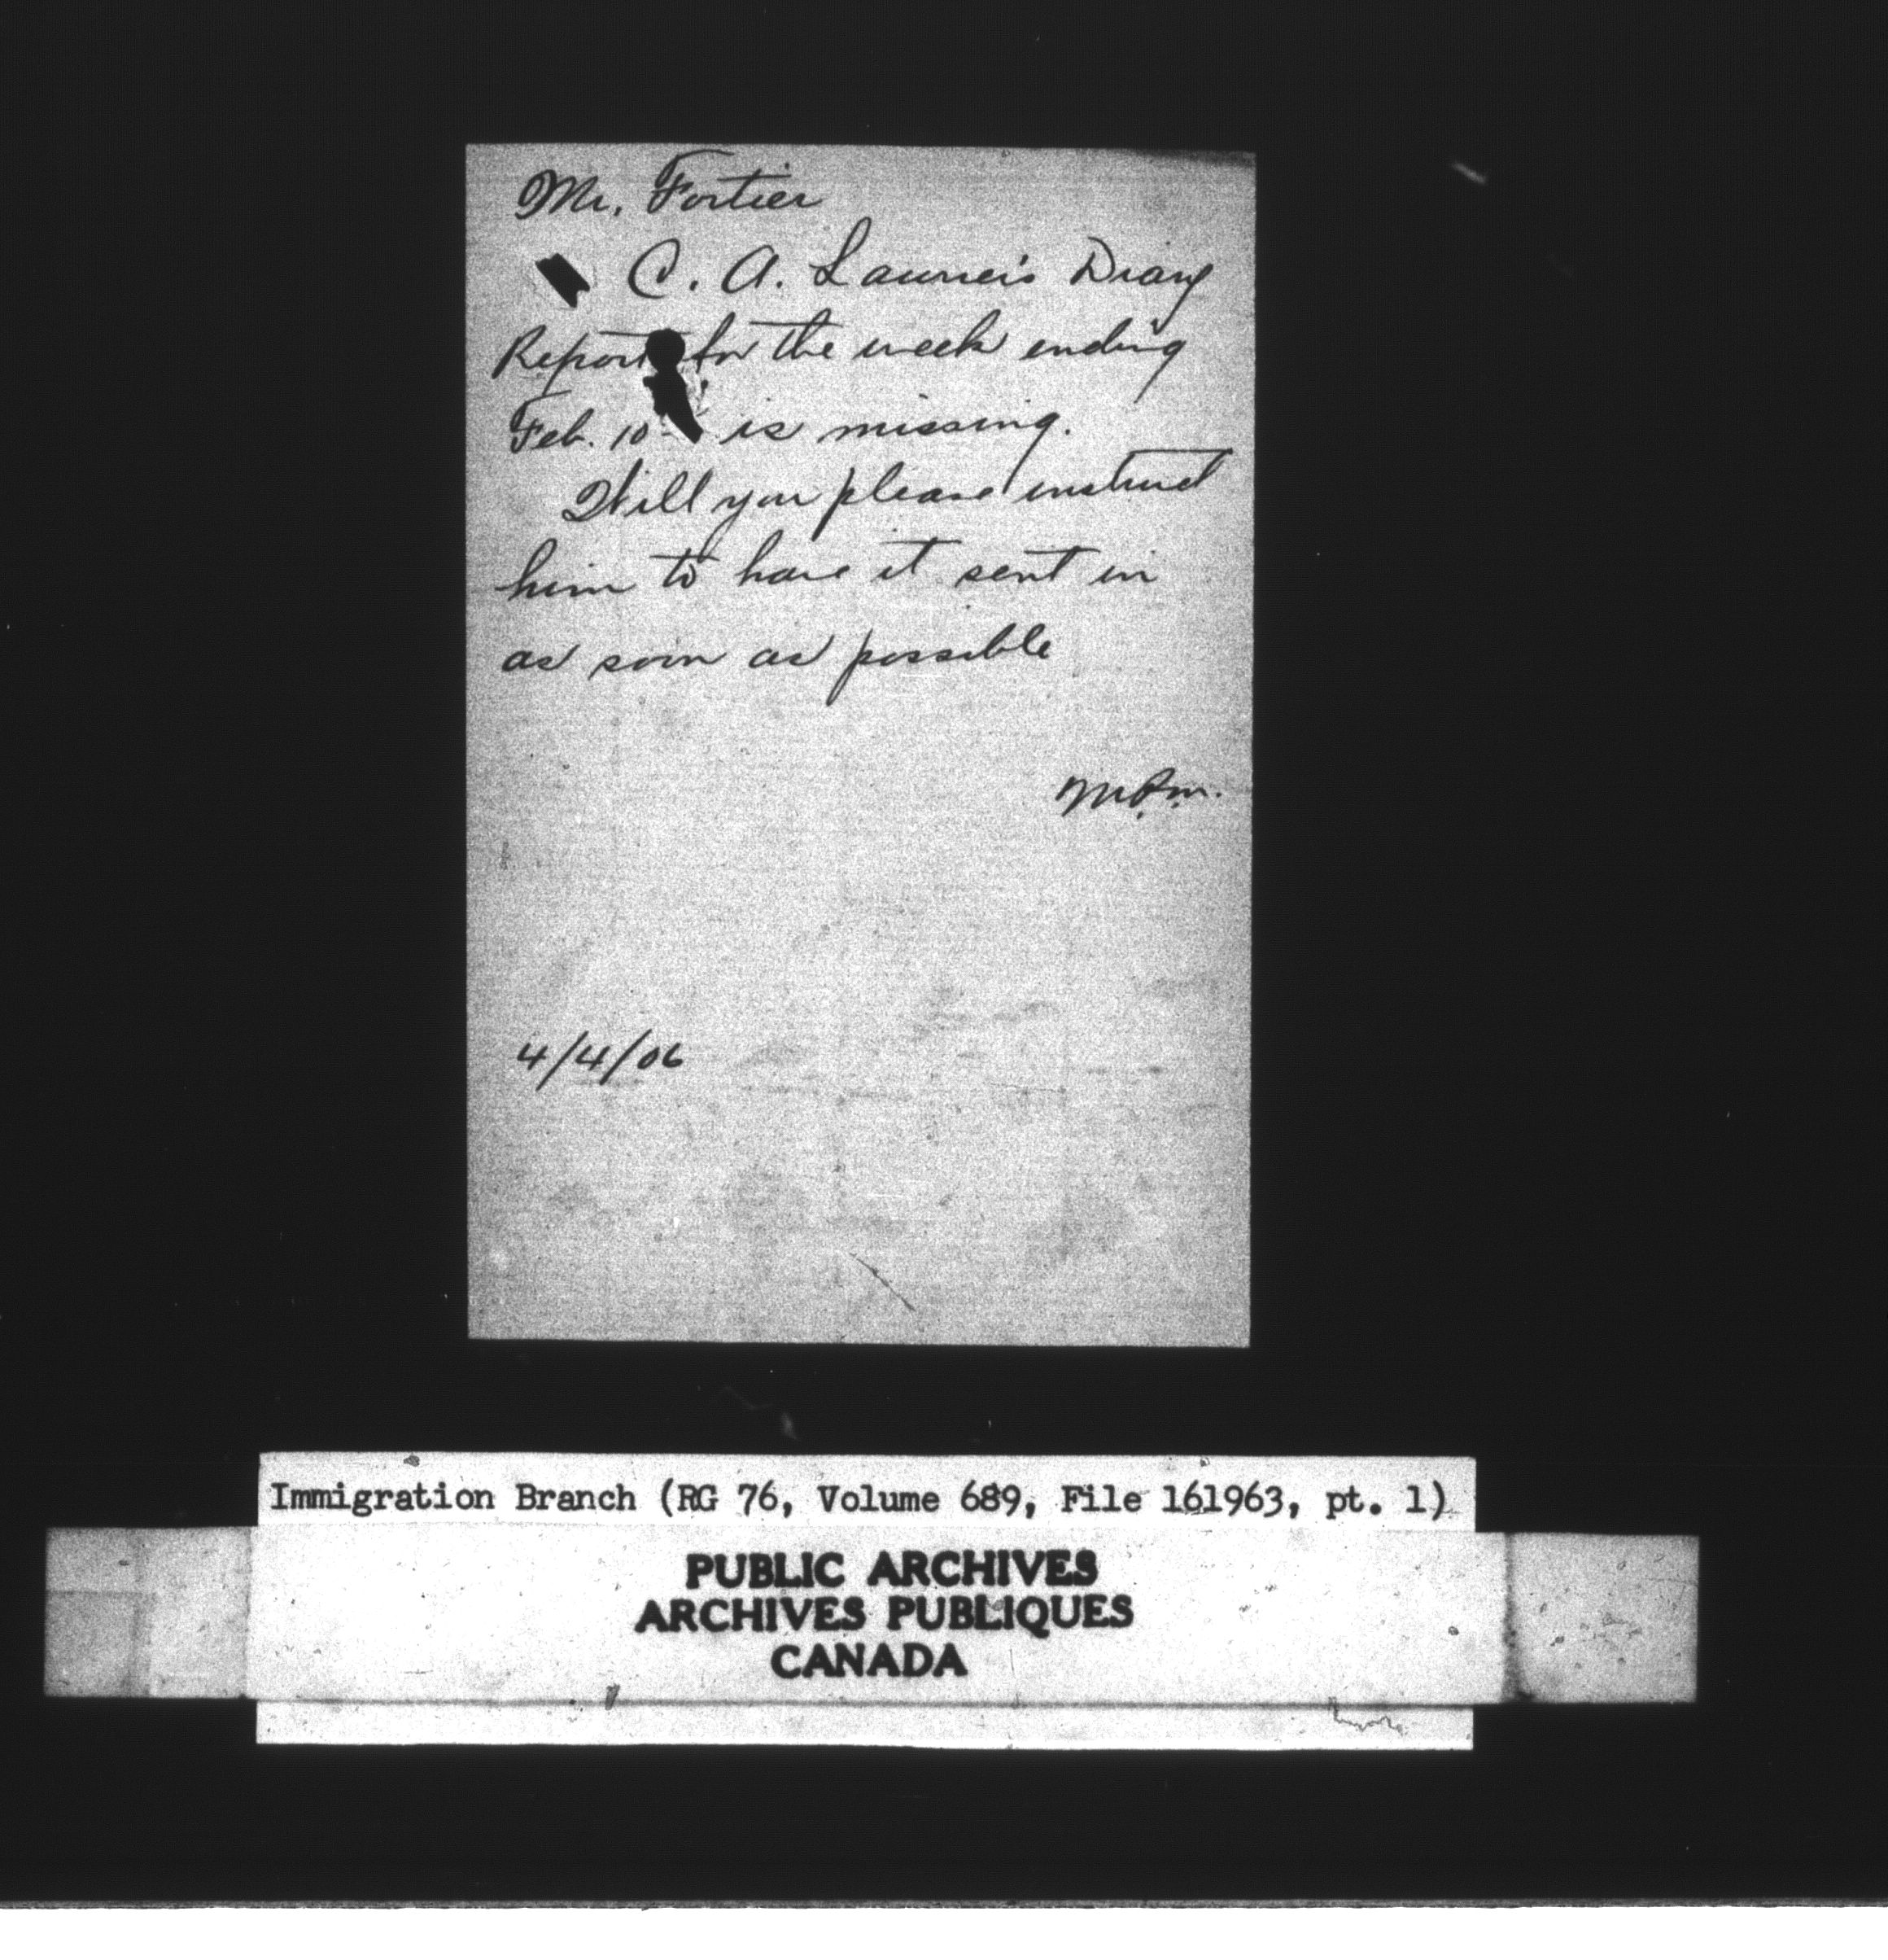 Mr. Fortier
C. A. Laurier's Diary
Report for the week ending
Feb. 10 - is missing.
Will you please instruct
him to have it sent in
as soon as possible
4/4/06
Immigration Branch (RG 76, Volume 689, File 161963, pt. 1)
PUBLIC ARCHIVES
ARCHIVES PUBLIQUES
CANADA